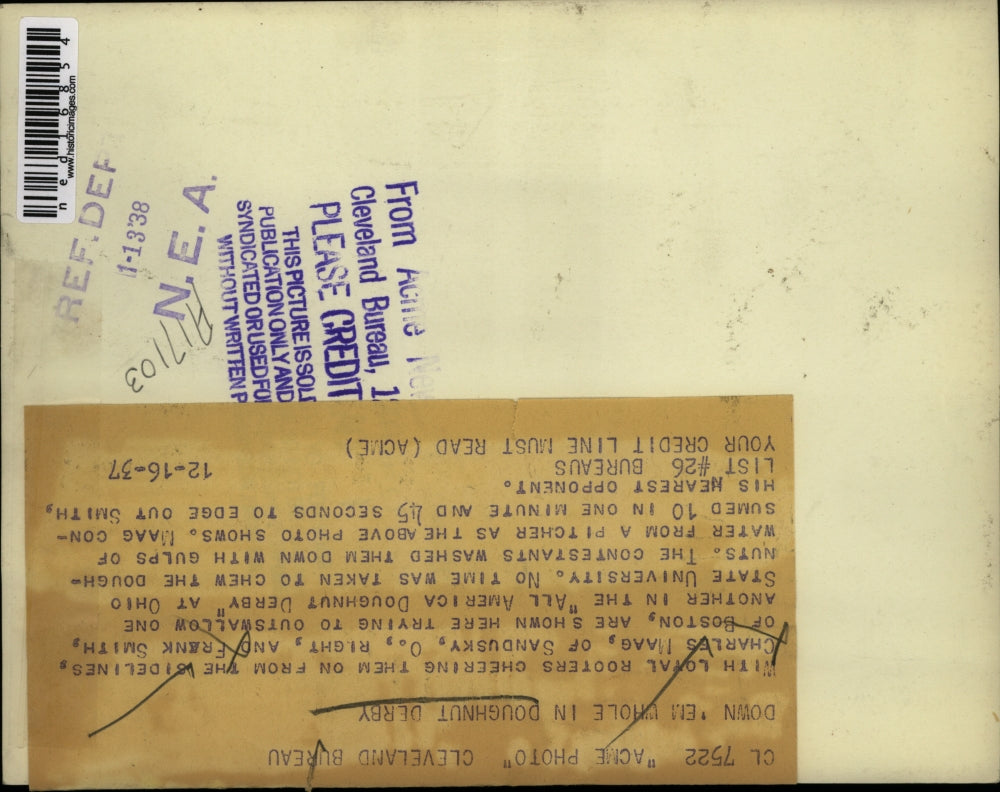 ned16854
www.historicimages.com
REF. DEP
1-13'38
N. E. A.
A17103
From Acme
Cleveland Bureau,
PLEASE CREDIT
THIS PICTURE IS
PUBLICATION ONLY AND
SYNDICATED OR USED
WITHOUT WRITTEN
CL 7522 "ACME PHOTO" CLEVELAND BUREAU
DOWN 'EM WHOLE IN DOUGHNUT DERBY
WITH LOYAL ROOTERS CHEERING THEM ON FROM THE SIDELINES,
CHARLES MAAG, OF SANDUSKY, O., RIGHT, AND FRANK SMITH,
OF BOSTON, ARE SHOWN HERE TRYING TO OUTSWALLOW ONE
ANOTHER IN THE "ALL AMERICA DOUGHNUT DERBY" AT OHIO
STATE UNIVERSITY. NO TIME WAS TAKEN TO CHEW THE DOUGH-
NUTS. THE CONTESTANTS WASHED THEM DOWN WITH GULPS OF
WATER FROM A PITCHER AS THE ABOVE PHOTO SHOWS. MAAG CON-
SUMED 10 IN ONE MINUTE AND 45 SECONDS TO EDGE OUT SMITH,
HIS NEAREST OPPONENT.
LIST #26 BUREAUS 12-16-37
YOUR CREDIT LINE MUST READ (ACME)